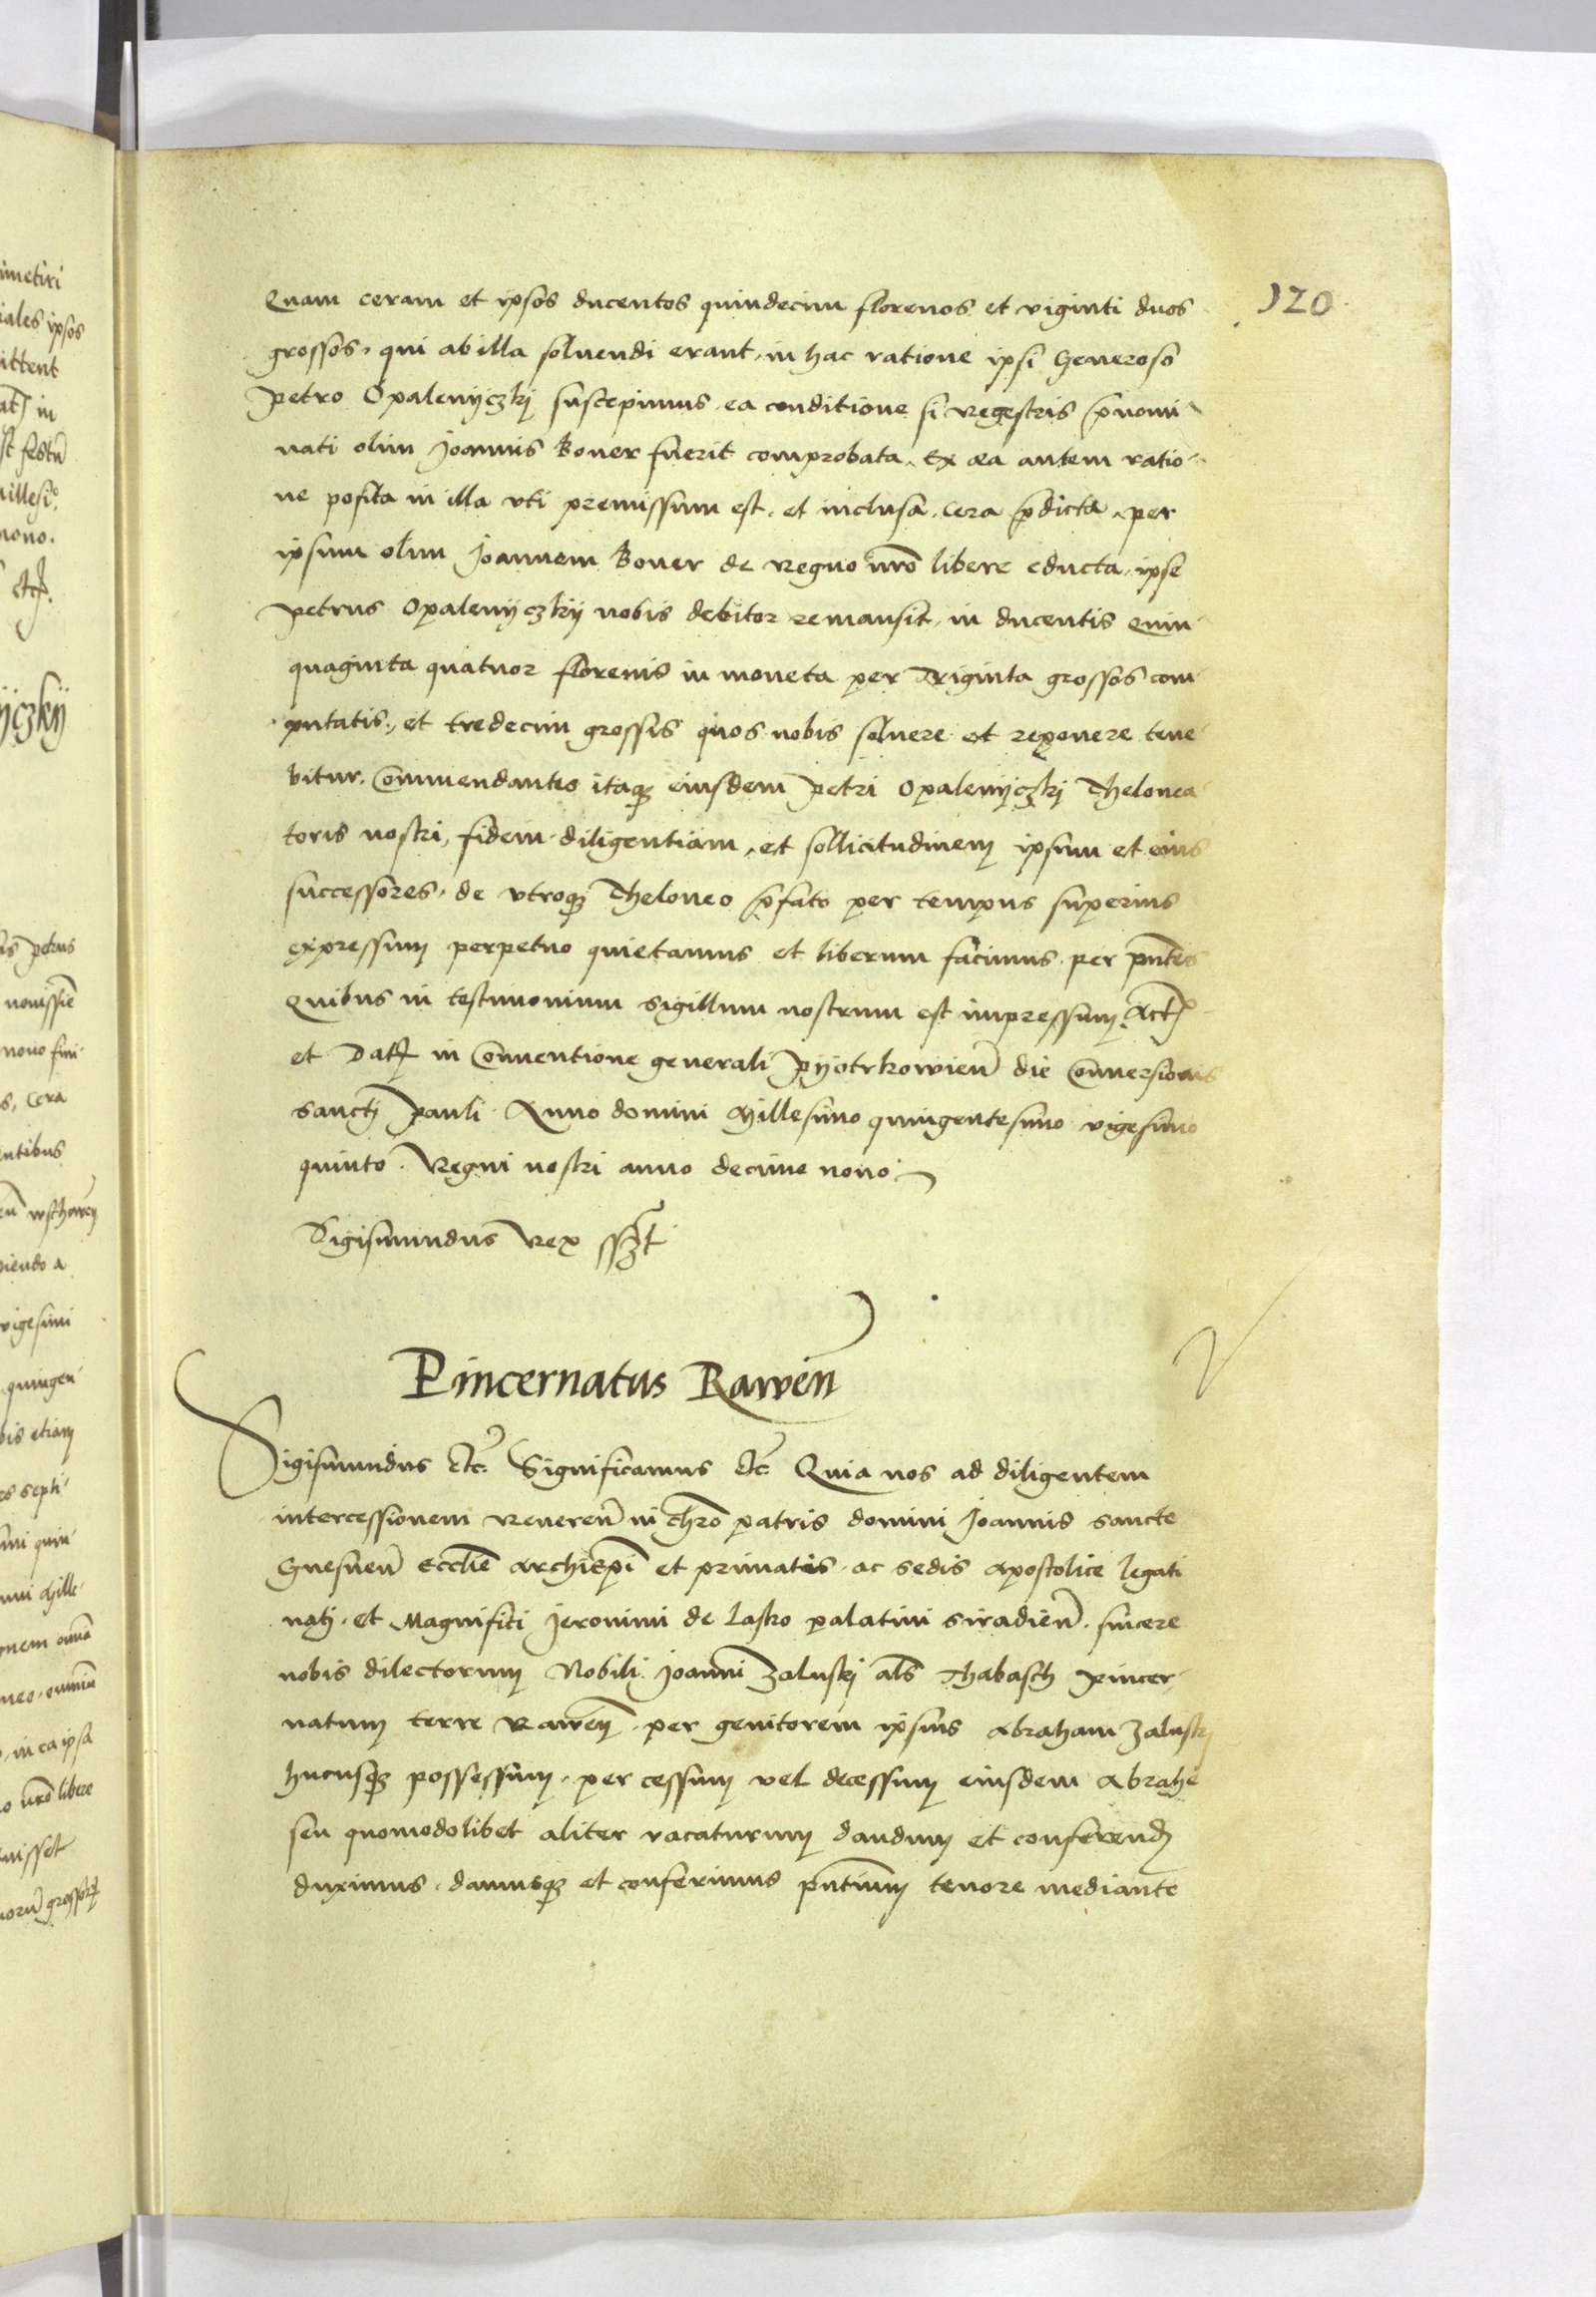 120
Quam ceram et ipsos ducentos quindecim florenos et viginti duos
grossos, qui ab illa soluendi erant, in hac ratione ipsi Generoso
Petro Opalenyczkj suscepimus, ea conditione si regestris p̄nomi-
nati olim Joannis Boner fuerit comprobata. Ex ea autem ratio-
ne posita in illa vti premissum est, et inclusa, cera p̄dicta, per
ipsum olim Joannem Boner de regno nr̄o libere educta, ipse
Petrus Opalenyczkij nobis debitor remansit, in ducentis quin-
quaginta quatuor florenis in moneta per Triginta grossos com-
putatis, et tredecim grossis quos nobis soluere et reponere tene-
bitur. Commendantes itaqꝫ eiusdem Petri Opalenyczkj Thelonea-
toris nostri, fidem diligentiam, et sollicitudinem ipsum et eius
successores, de vtroqꝫ Theloneo p̄fato per tempus superius
expressum perpetuo quietamus et liberum facimus per pn̄tes
Quibus in testimonium sigillum nostrum est impressum. Act
et Dat in Conuentione generali Pyotrkowien̄ die Conuersionis
sanctj Pauli Anno domini Millesimo quingentesimo vigesimo
quinto. Regni nostri anno decimo nono.
Sigismundus Rex sszt
Pincernatus Rawen̄
Sigismundus etc. Significamus etc. Quia nos ad diligentem
intercessionem Reueren̄ in chro patris domini Joannis sancte
Gnesnen̄ Ecclīe Archiepī et primatis, ac sedis apostolice legati
natj, et Magnifici Jeronimi de Lasko palatini Siradien̄, sincere
nobis dilectorum Nobili Joanni Zaluskj als Thabasch Pincer-
natum terre Rawen̄, per genitorem ipsius Abraham Zaluskj
hucusqꝫ possessum, per cessum vel decessum eiusdem Abrahe
seu quomodolibet aliter vacaturum dandum et conferend
duximus, damusqꝫ et conferimus pn̄tium tenore mediante